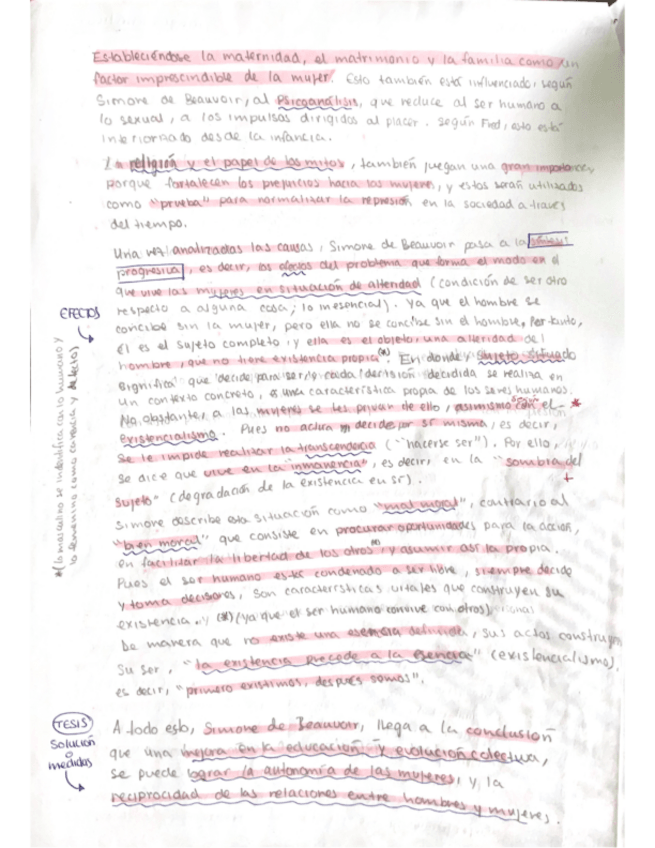 Estableciéndose la maternidad, el matrimonio y la familia como un
factor imprescindible de la mujer. Esto también está influenciado, según
Simone de Beauvoir, al Psicoanálisis, que reduce al ser humano a
lo sexual, a los impulsos dirigidos al placer. Según Freud, esto está
interiorizado desde la infancia.
La religión y el papel de los mitos, también juegan una gran importancia,
porque fortalecen los prejuicios hacia las mujeres, y estos serán utilizados
como "prueba" para normalizar la represión en la sociedad a través
del tiempo.
Una vez analizadas las causas, Simone de Beauvoir pasa a la síntesis
progresiva, es decir, los efectos del problema que forma el modo en el
que vive las mujeres en situación de alteridad (condición de ser otro
EFECTOS
respecto a alguna cosa; lo inesencial). Ya que el hombre se
concibe sin la mujer, pero ella no se concibe sin el hombre. Por tanto,
él es el sujeto completo y ella es el objeto, una alteridad del
hombre, que no tiene existencia propia (*). En donde y sujeto situado
significa que "decide para ser" y cada decisión decidida se realiza en
un contexto concreto, es una característica propia de los seres humanos.
No obstante, a las mujeres se les privan de ello, asimismo según el *
existencialismo. Pues no actúa ni decide por sí misma, es decir,
se le impide realizar la transcendencia ("hacerse ser"). Por ello,
se dice que vive en la "inmanencia", es decir, en la "sombra del
sujeto" (degradación de la existencia en sí).
*(lo masculino se indentifica con lo humano y
lo femenino como carencia y defecto)
Simone describe esta situación como "mal moral", contrario al
"bien moral" que consiste en procurar oportunidades para la acción,
en facilitar la libertad de los otros (*) y asumir así la propia.
Pues el ser humano está condenado a ser libre, siempre decide
y toma decisiones, son características vitales que construyen su
existencia. y (*) (ya que el ser humano convive con otros)
De manera que no existe una esencia definida, sus actos construyen
su ser, "la existencia precede a la esencia" (existencialismo),
es decir, "primero existimos, después somos".
TESIS
Solución o
medidas
A todo esto, Simone de Beauvoir, llega a la conclusión
que una mejora en la educación y evolución colectiva,
se puede lograr la autonomía de las mujeres, y la
reciprocidad de las relaciones entre hombres y mujeres.